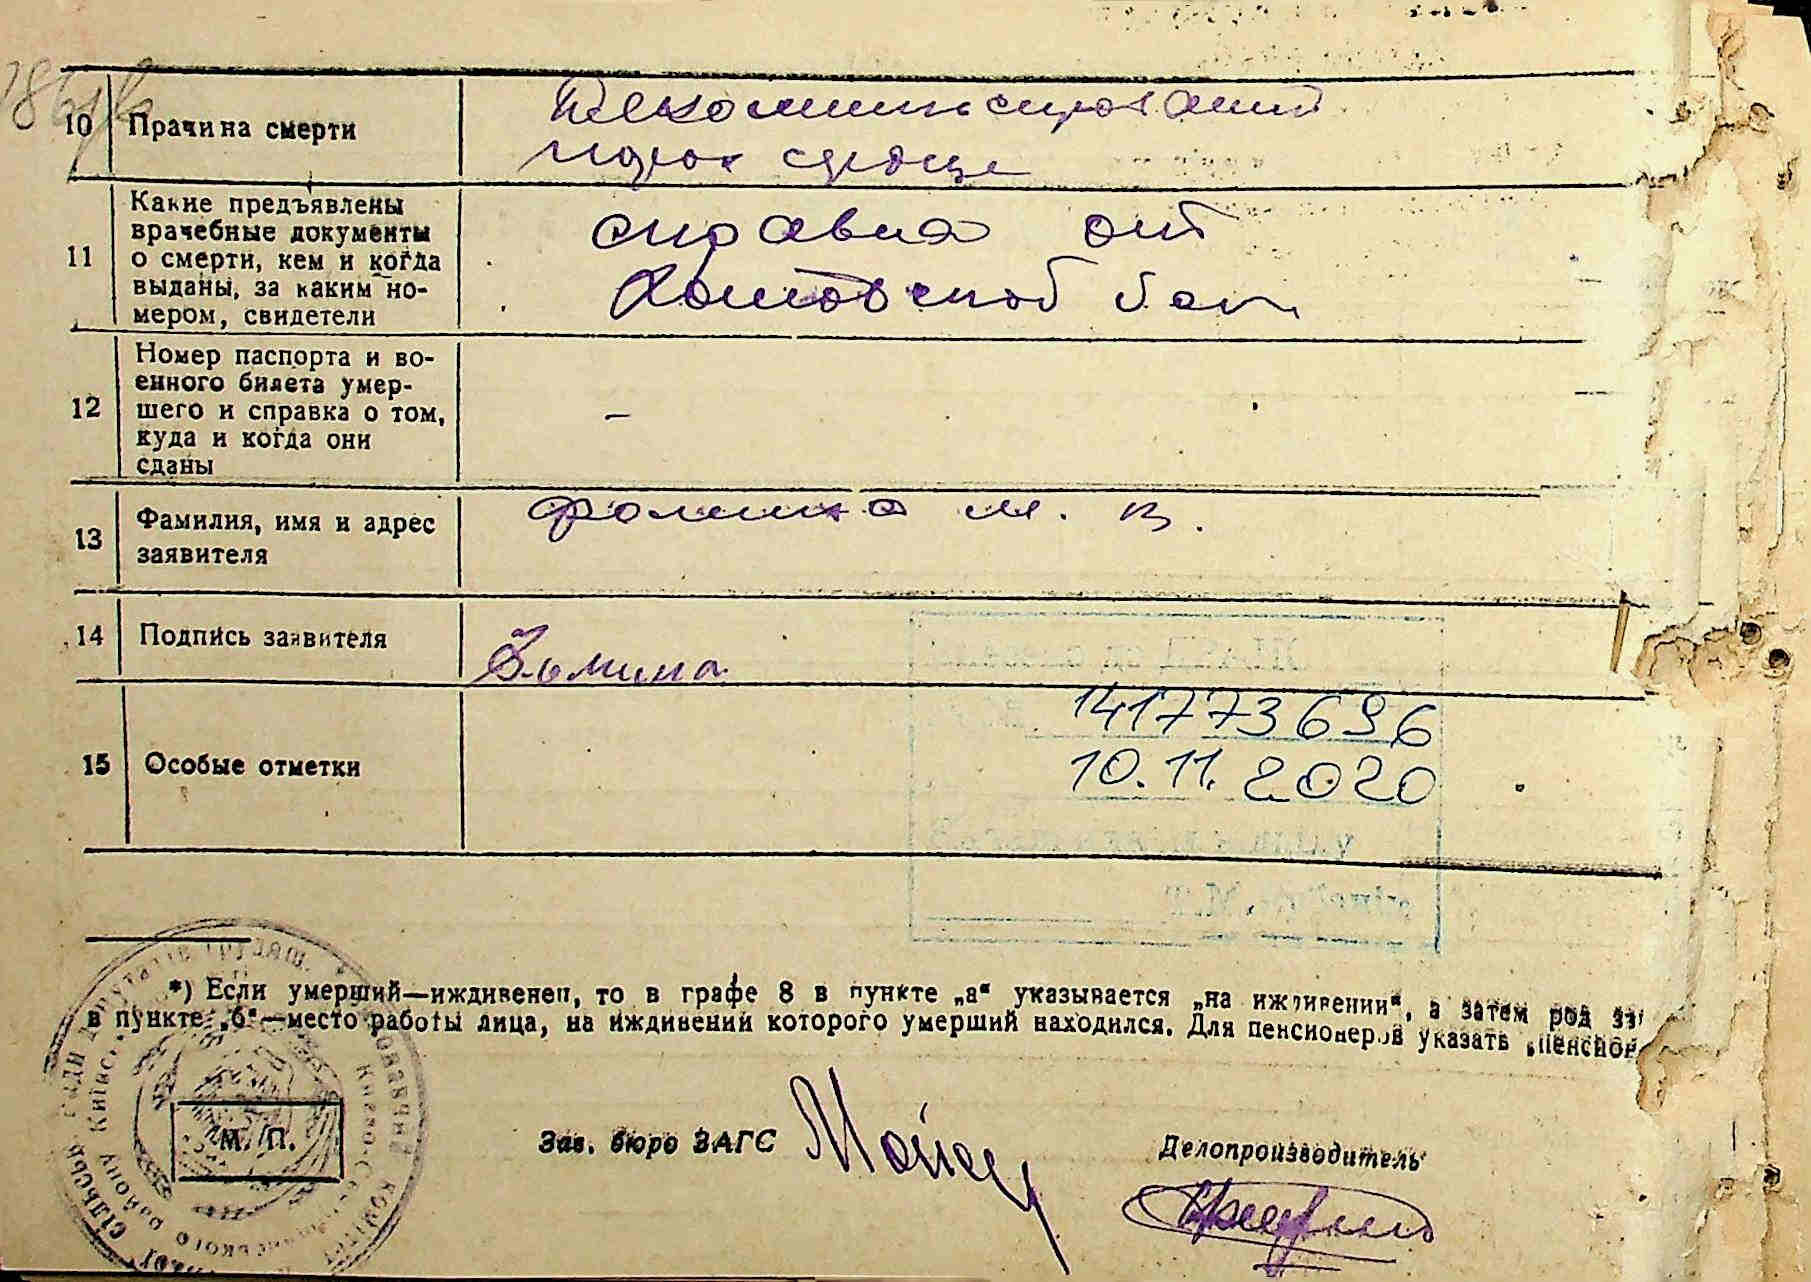 10 Прачина смерти
Декоминьсирований
порок сердце
11 Какие предъявлены
врачебные документы
о смерти, кем и когда
выданы, за каким но-
мером, свидетели
справка от
Хотовской бол
12 Номер паспорта и во-
енного билета умер-
шего и справка о том,
куда и когда они
сданы
–
13 Фамилия, имя и адрес
заявителя
Фомина М. В.
14 Подпись заявителя
Фомина
15 Особые отметки
141773696
10.11.2020
*) Если умерший—иждивенец, то в графе 8 в пункте „а“ указывается „на иждивении“, а затем род за
в пункте „б“—место работы лица, на иждивении которого умерший находился. Для пенсионеров указать „пенсион
М. П.
Зав. бюро ЗАГС
Делопроизводитель